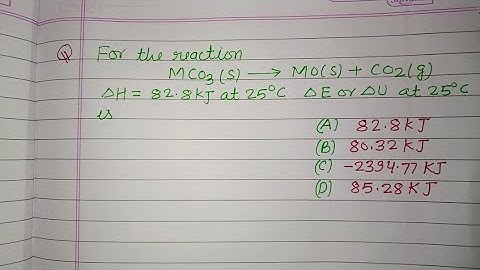 Q For the reaction
MCO₃(s) ⟶ MO(s) + CO₂(g)
ΔH = 82.8KJ at 25°C ΔE or ΔU at 25°C
is
(A) 82.8KJ
(B) 80.32KJ
(C) -2394.77KJ
(D) 85.28KJ